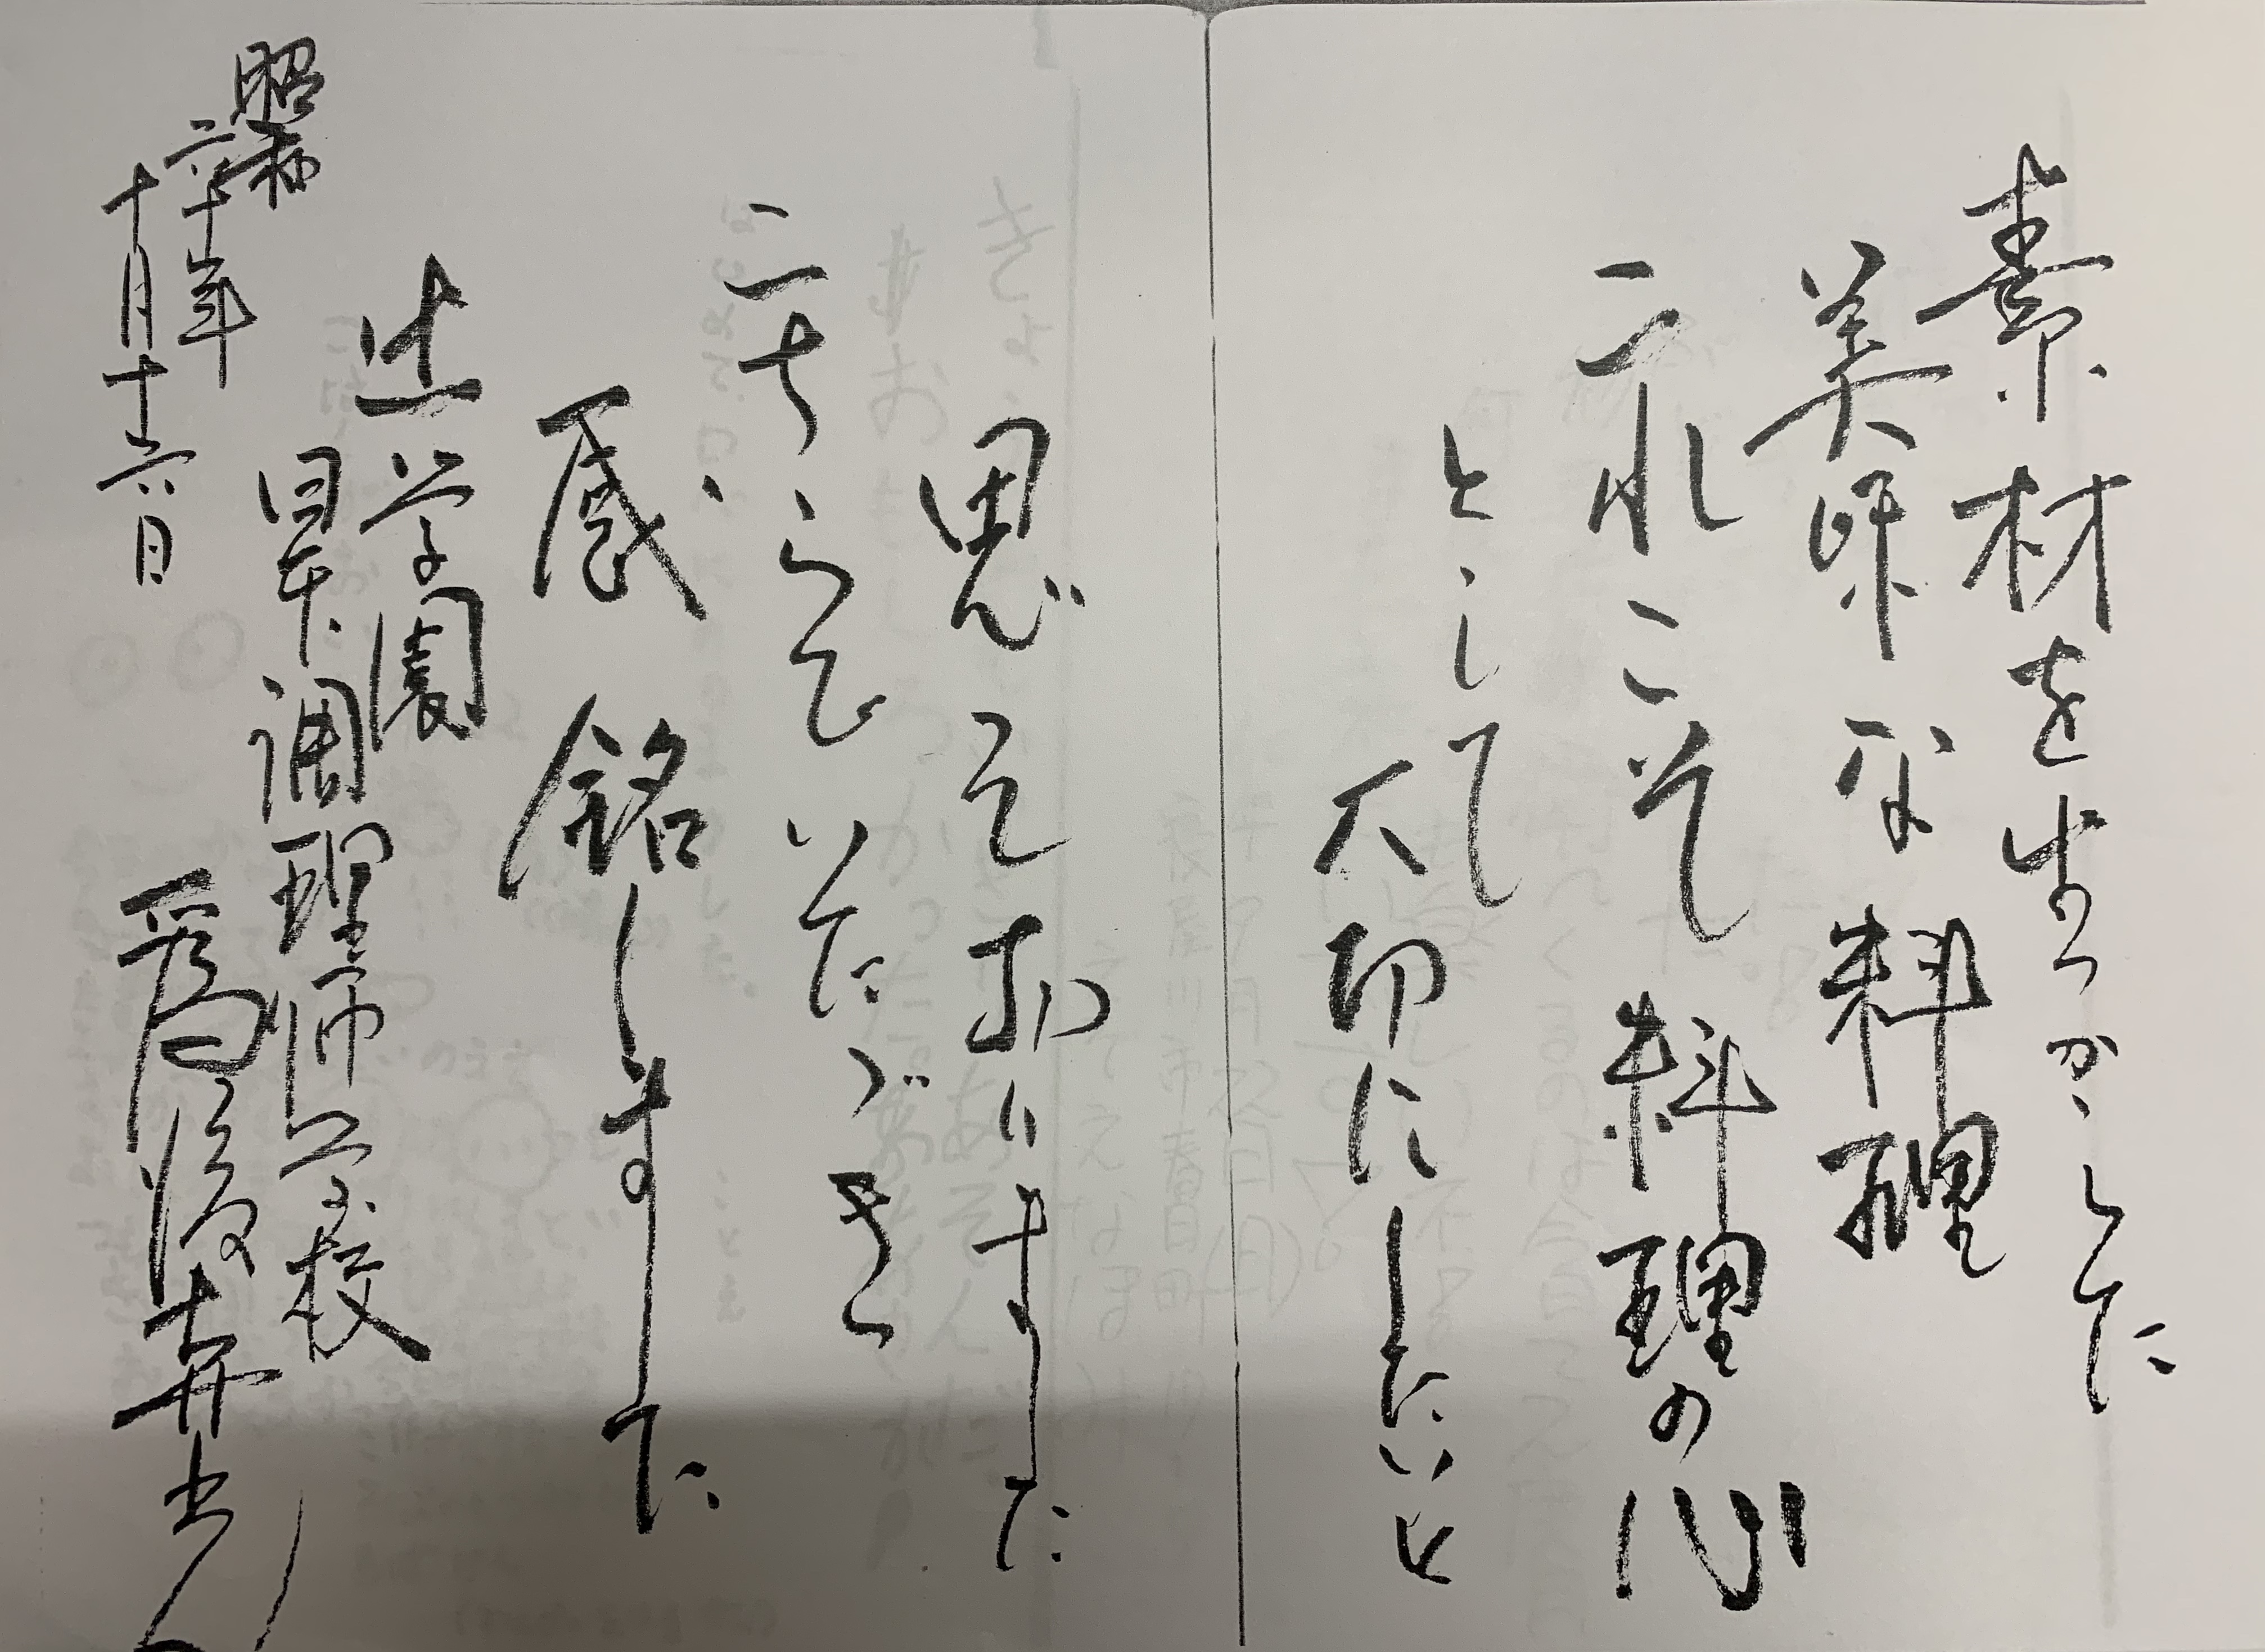 素材を生かした
美味な料理
これこそ料理の心
として
大切にしたいと
思っておりました
こちらでいただき
感銘しました
辻学園
日本調理師学校
為後喜光
昭和
六十年
十月十六日